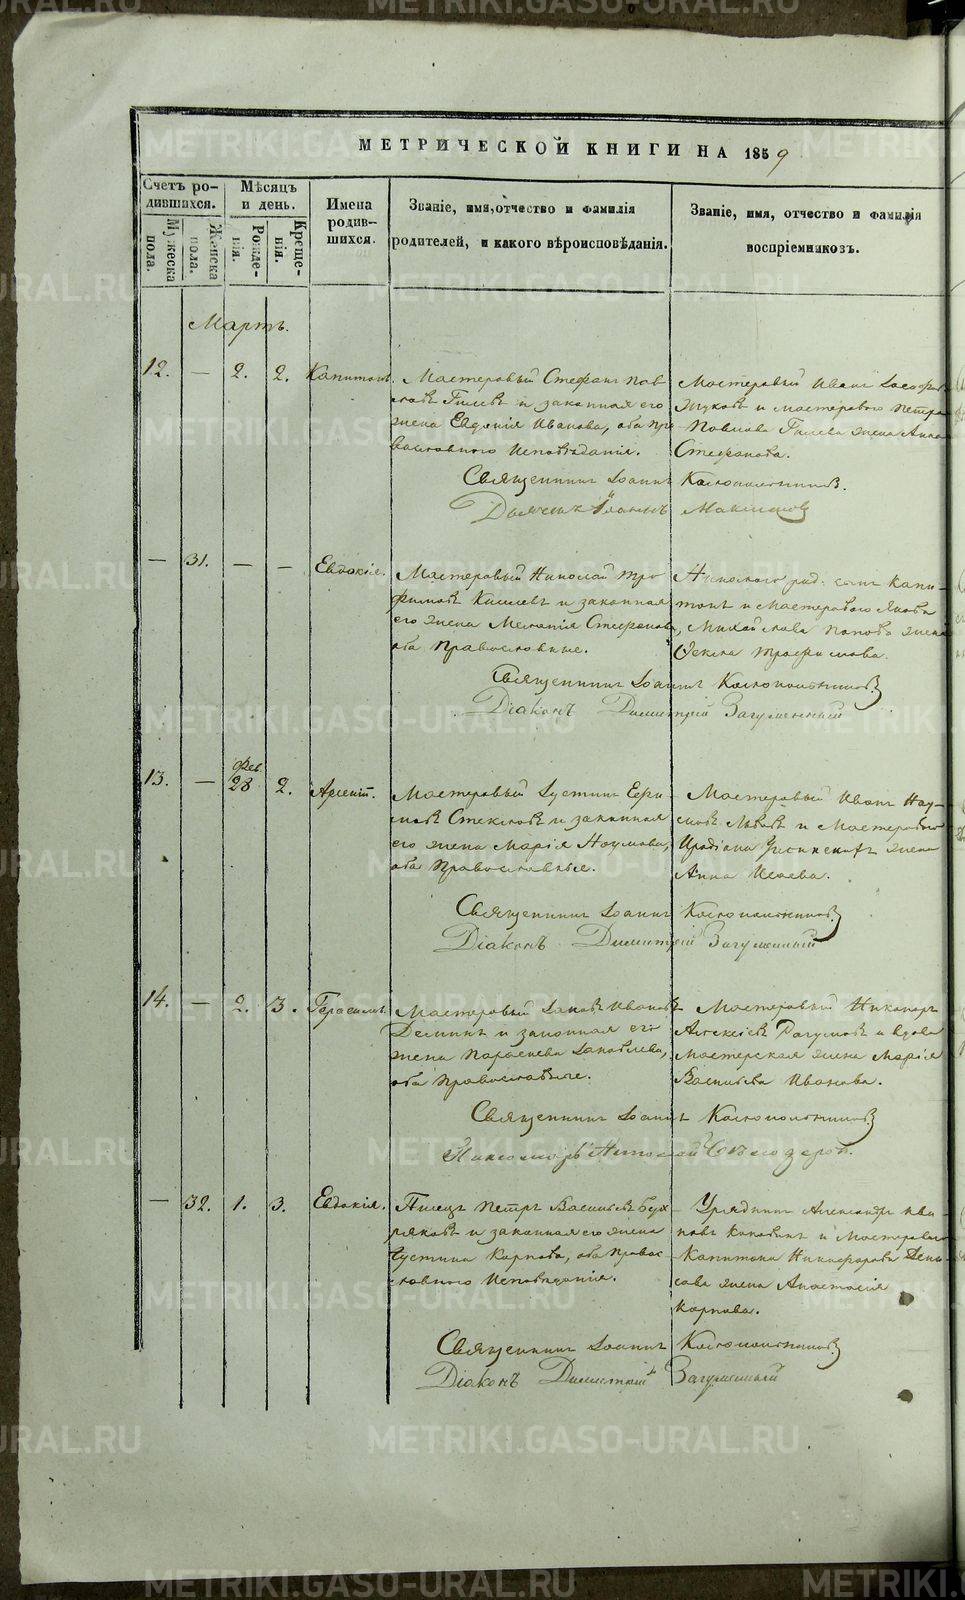 МЕТРИЧЕСКОЙ КНИГИ НА 1859
Счетъ ро-
дившихся.
Мужеска
пола.
Женска
пола.
Мѣсяцъ
и день.
Рожде-
нія.
Креще-
нія.
Имена
родив-
шихся.
Званіе, имя, отчество и фамилія
родителей, и какого вѣроисповѣданія.
Званіе, имя, отчество и фамилія
воспріемниковъ.
Мартъ.
12. — 2. 2. Капитонъ.
Мастеровый Стефанъ Пав
ловъ Гилевъ и законная его
жена Евдокія Иванова, оба пра
вославнаго Исповѣданія.
Мастеровый Иванъ
Жуковъ и мастероваго Петра
Павлова Гилева жена Анна
Стефанова.
Священникъ Іоаннъ
Дьячекъ Іоаннъ Максимовъ
— 31. — — Евдокія.
Мастеровый Николай Тро
фимовъ Киселевъ и законная
его жена Меланія Стефанова,
оба Православные.
сынъ Капи-
тонъ и Мастероваго Якова
Михайлова Попова жена
Фекла Трофимова.
Священникъ Іоаннъ
Діаконъ Димитрій Загуменный
13. — Фев. 28 2. Арсеній.
Мастеровый Іустинъ Ефи
мовъ Стекловъ и законная
его жена Марія Наумова,
оба Православные.
Мастеровый Иванъ Нау-
мовъ Львовъ и Мастероваго
жена
Анна Исаева.
Священникъ Іоаннъ
Діаконъ Димитрій Загуменный
14. — 2. 3. Герасимъ.
Мастеровый Іаковъ Ивановъ
Деминъ и законная его
жена Параскева Іаковлева,
оба Православные.
Мастеровый Никаноръ
Алексіевъ и вдова
мастерская жена Марія
Васильева Иванова.
Священникъ Іоаннъ
Пономарь Николай
— 32. 1. 3. Евдокія.
Писецъ Петръ Васильевъ Бух-
ряковъ и законная его жена
Іустина Карпова, оба Право-
славнаго Исповѣданія.
Урядникъ Александръ Ива-
новъ и Мастероваго
Капитона Никифорова Дени-
сова жена Анастасія
Карпова.
Священникъ Іоаннъ
Діаконъ Димитрій Загуменный
METRIKI.GASO-URAL.RU